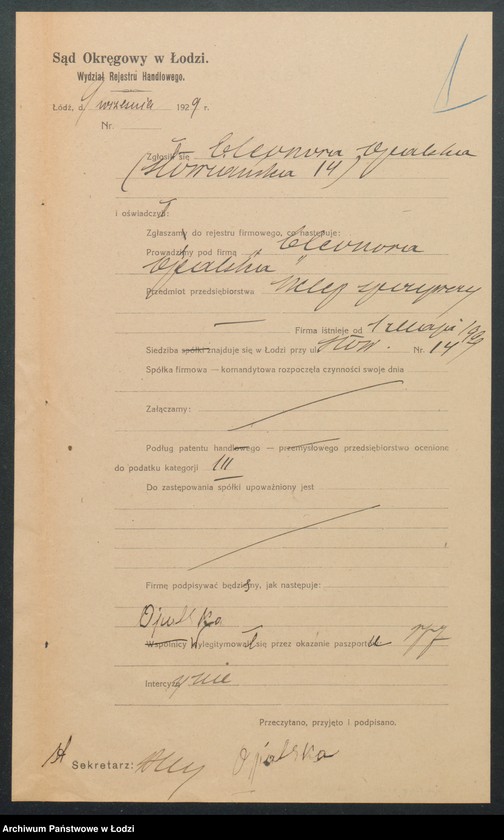 Sąd Okręgowy w Łodzi.
Wydział Rejestru Handlowego.
Łódź, d. września 1929 r.
Nr.
Zgłosił się Eleonora Opalska
14)
i oświadczył:
Zgłaszam do rejestru firmowego, co następuje:
Prowadzimy pod firmą „Eleonora
Opalska”
Przedmiot przedsiębiorstwa sklep spożywczy
Firma istnieje od 1 maja 1929
Siedziba spółki znajduje się w Łodzi przy ul. Słow. Nr. 14
Spółka firmowa — komandytowa rozpoczęła czynności swoje dnia
Załączamy:
Podług patentu handlowego — przemysłowego przedsiębiorstwo ocenione
do podatku kategorji III
Do zastępowania spółki upoważniony jest
Firmę podpisywać będzie, jak następuje:
Opalska
Wspólnicy wylegitymował się przez okazanie paszportu
Intercyzy nie
Przeczytano, przyjęto i podpisano.
Sekretarz: Opalska
Archiwum Państwowe w Łodzi